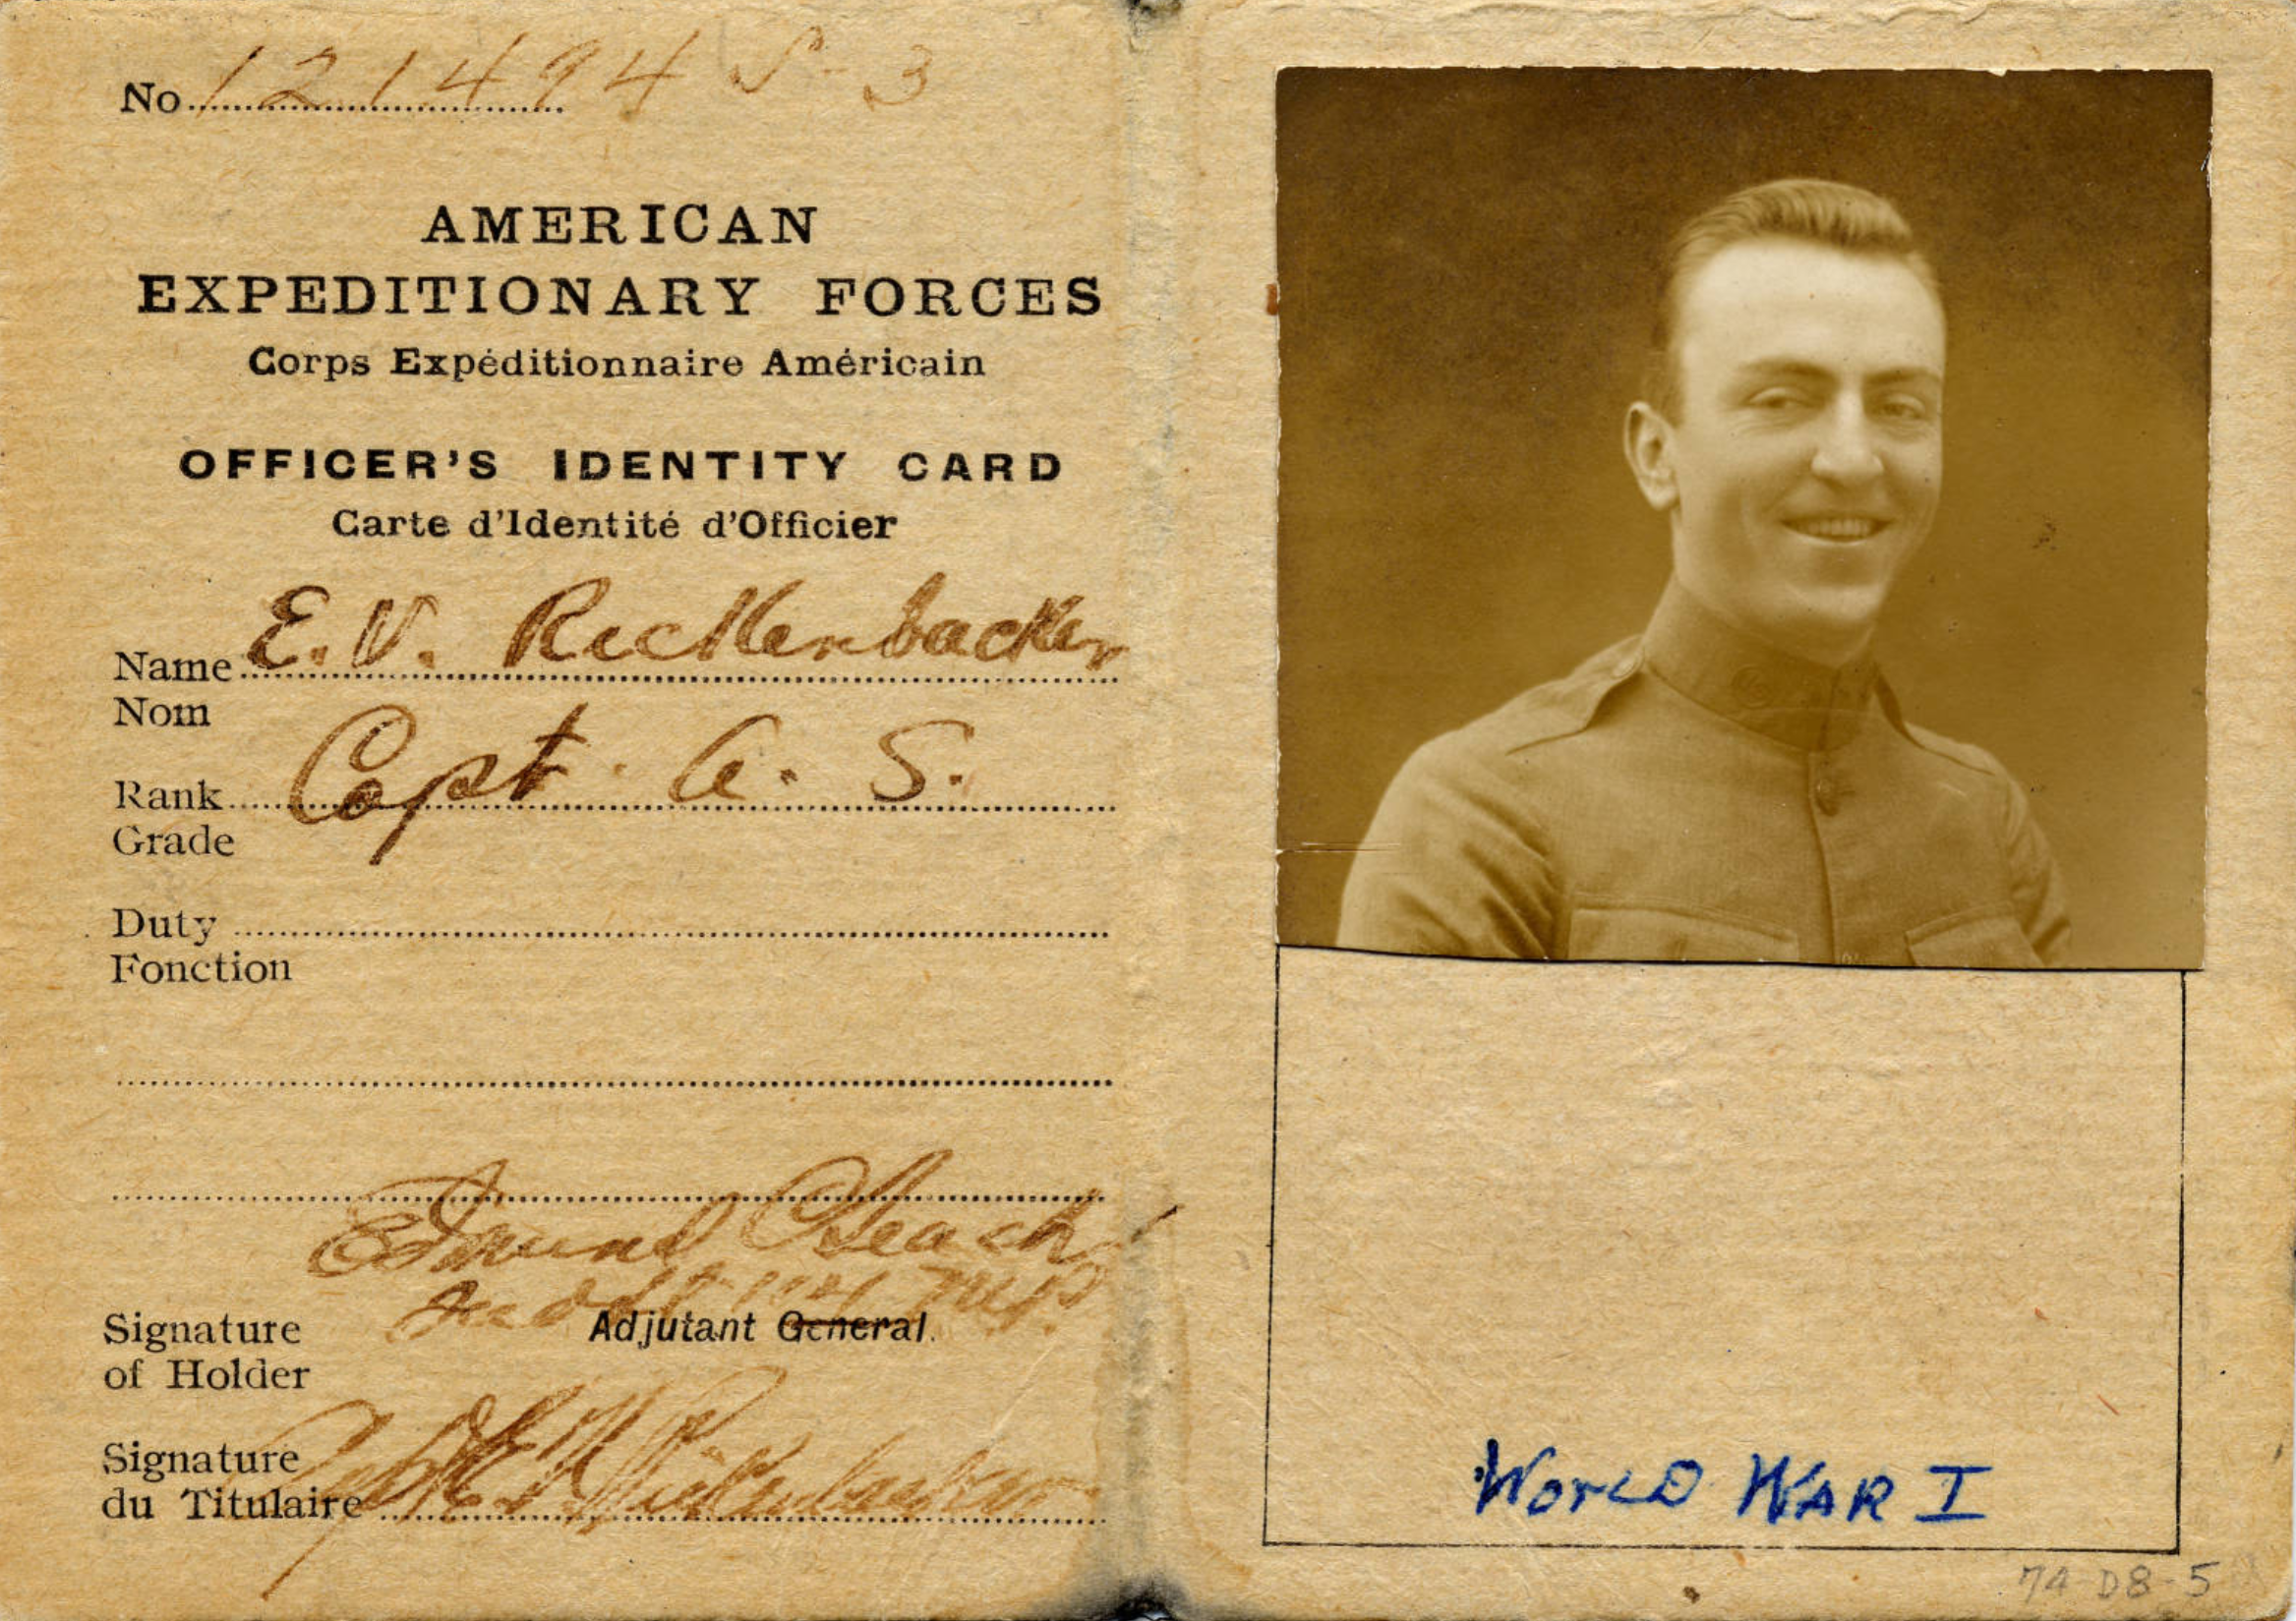 No 121494 S-3
AMERICAN
EXPEDITIONARY FORCES
Corps Expéditionnaire Américain
OFFICER'S IDENTITY CARD
Carte d'Identité d'Officier
Name E. V. Rickenbacker
Nom
Rank Capt. A. S.
Grade
Duty
Fonction
Edmund Leach
Adjutant General.
Signature
of Holder
Signature
du Titulaire Capt E V Rickenbacker
WORLD WAR I
74-D8-5